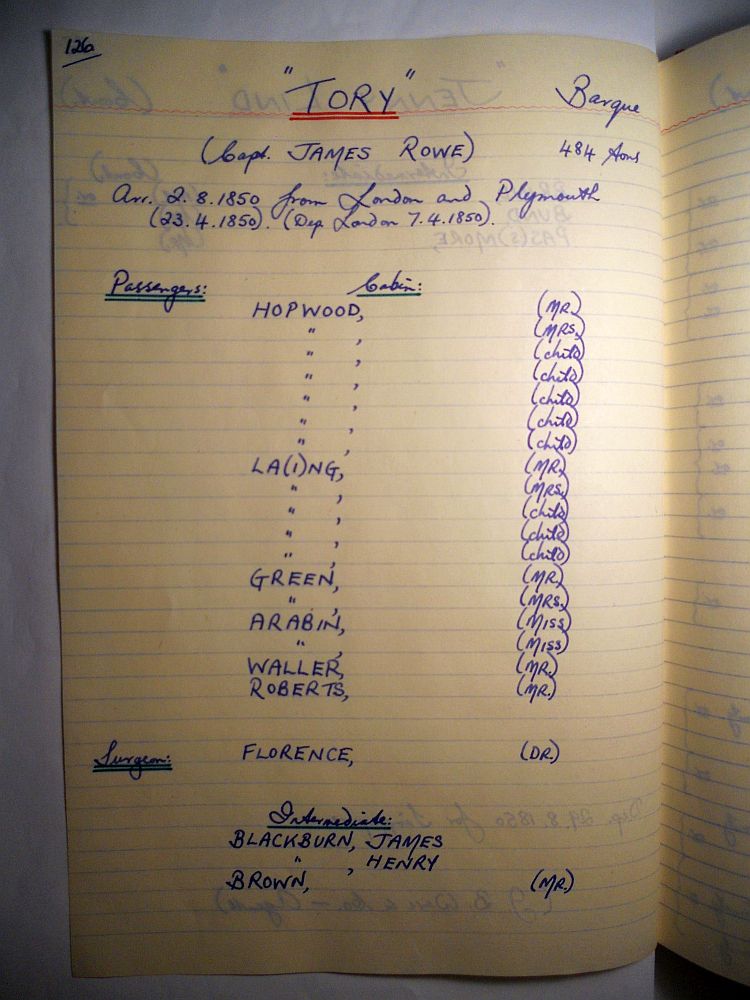 126a
"TORY" Barque
(Capt. JAMES ROWE) 484 tons
Arr. 2.8.1850 from London and Plymouth
(23.4.1850). (Dep London 7.4.1850).
Passengers: Cabin:
HOPWOOD, (MR.)
" , (MRS.)
" , (child)
" , (child)
" , (child)
" , (child)
" , (child)
LA(I)NG, (MR.)
" , (MRS.)
" , (child)
" , (child)
" , (child)
GREEN, (MR.)
" , (MRS.)
ARABIN, (MISS)
" , (MISS)
WALLER, (MR.)
ROBERTS, (MR.)
Surgeon: FLORENCE, (DR.)
Intermediate:
BLACKBURN, JAMES
" , HENRY
BROWN, (MR.)